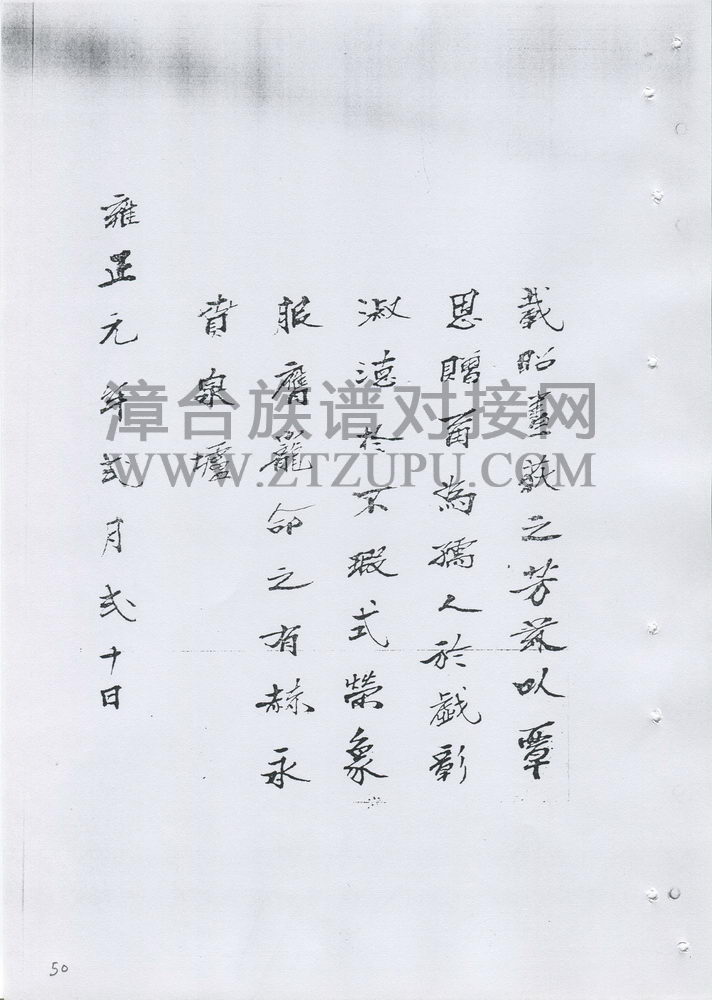 載昭畫荻之芳茲以覃
恩贈爾為孺人於戲彰
淑德於不瑕式榮象
服膺寵命之有赫永
賁泉壚
雍正元年弍月弍十日
漳台族谱对接网
WWW.ZTZUPU.COM
50